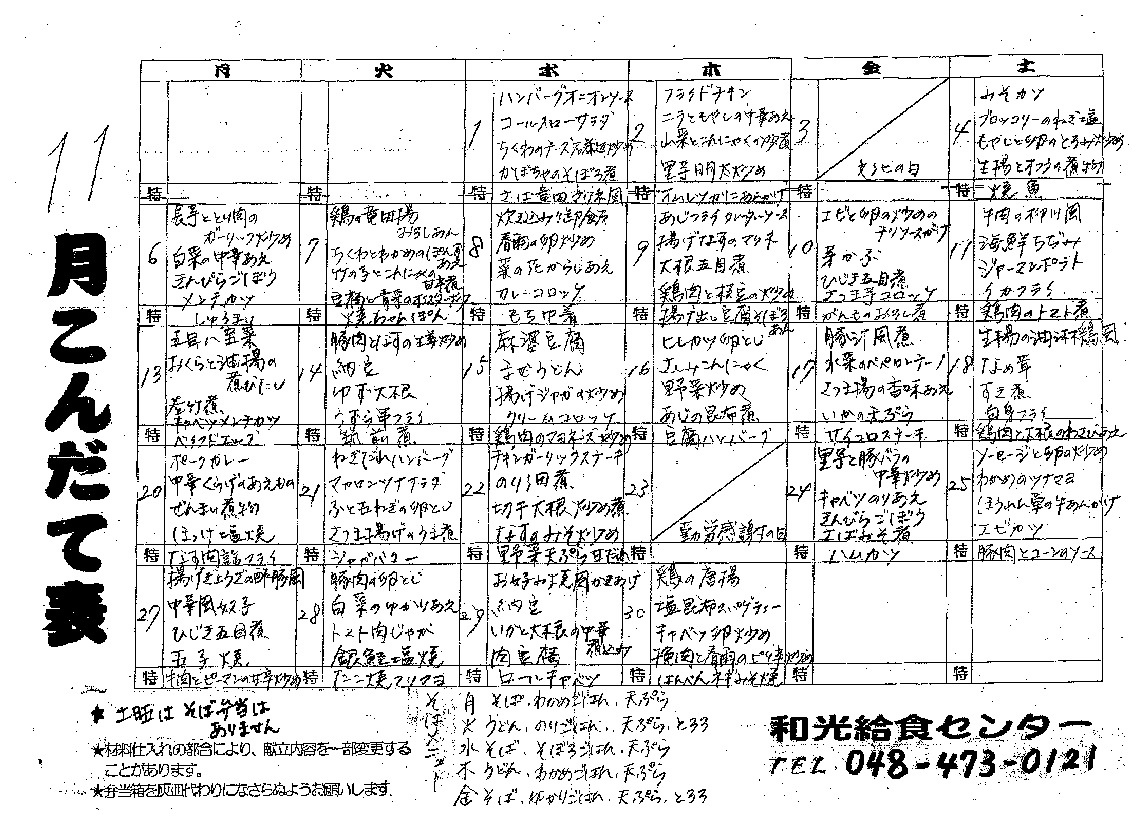 11月こんだて表
月 火 水 木 金 土
1
ハンバーグオニオンソース
コールスローサラダ
ちくわのチーズ
かぼちゃのそぼろ煮
特
2
フライドチキン
ニラともやしの中華あえ
山菜とこんにゃくの炒煮
里芋明太炒め
特
3
文化の日
特
4
みそカツ
ブロッコリーのねぎ塩
もやしと卵のとろみ炒め
生揚とオクラの煮物
特 焼魚
6
長芋ととり肉の
ガーリック炒め
白菜の中華あえ
きんぴらごぼう
メンチカツ
特 しゅうまい
7
鶏の竜田揚
おろしあん
ちくわとわかめのぽん酢あえ
竹の子とこんにゃくの
豆腐と青菜のオイスターソース
特 焼ちゃんぽん
8
春雨の卵炒め
菜の花からしあえ
カレーコロッケ
特 もち巾着
9
あじフライカレーソース
揚げなすのマリネ
大根五目煮
鶏肉と枝豆の炒め
特 揚げ出し豆腐そぼろあん
10
エビと卵の炒めの
チリソースがけ
芽かぶ
ひじき五目煮
さつま芋コロッケ
特 がんものおろし煮
11
牛肉の柳川風
海鮮ちぢみ
ジャーマンポテト
イカフライ
特 鶏肉のトマト煮
13
五目八宝菜
おくらと油揚の
煮びたし
キャベツメンチカツ
特
14
納豆
ゆず大根
うずら串フライ
特 筑前煮
15
麻婆豆腐
きざみうどん
揚げジャガの炒め
クリームコロッケ
特 鶏肉のマヨネーズ炒め
16
ヒレカツ卵とじ
さしみこんにゃく
野菜炒め
あじの昆布煮
特 豆腐ハンバーグ
17
豚汁風煮
水菜のペペロンチーノ
さつま揚の香味あえ
いかの天ぷら
特 サイコロステーキ
18
なめ茸
すき煮
白身フライ
特 鶏肉と大根のわさびあえ
20
ポークカレー
中華くらげのあえもの
ぜんまい煮物
ほっけ塩焼
特 なす肉詰フライ
21
ねぎだれハンバーグ
マカロニツナサラダ
ふと玉ねぎの卵とじ
さつま揚げのうま煮
特 ジャガバター
22
チキンガーリックステーキ
のり佃煮
切干大根の炒め煮
なすのみそ炒め
特
23
勤労感謝の日
特
24
里芋と豚バラの
中華炒め
キャベツのりあえ
きんぴらごぼう
さばみそ煮
特 ハムカツ
25
ソーセージと卵の炒め
わかめのツナマヨ
エビカツ
特 豚肉とコーンのソース
27
揚げぎょうざの酢豚風
ひじき五目煮
玉子焼
特 牛肉とピーマンの甘辛炒め
28
豚肉の卵とじ
白菜のゆかりあえ
トマト肉じゃが
銀鮭塩焼
特 たこ焼マヨ
29
お好み焼風かきあげ
納豆
いかと大根の中華煮込み
肉豆腐
特 ロールキャベツ
30
鶏の唐揚
塩昆布スパゲティー
キャベツ卵炒め
挽肉と春雨のピリ辛炒め
特 はんぺんネギみそ焼
特
特
★土曜はそば弁当は
ありません
★材料仕入れの都合により、献立内容を一部変更する
ことがあります。
★弁当箱を灰皿代わりになさらぬようお願いします
月 そば、わかめごはん、天ぷら
火 うどん、のりごはん、天ぷら、とろろ
水 そば、そぼろごはん、天ぷら
木 うどん、わかめごはん、天ぷら
金 そば、ゆかりごはん、天ぷら、とろろ
和光給食センター
TEL 048-473-0121